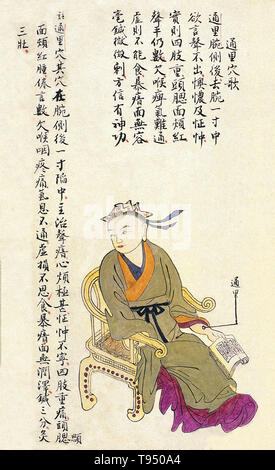 通里穴狀
通里腕側後去腕一寸中
欲言聲不出懊憹及怔忡
實則四肢重頭腮面頰紅
聲平仍數欠喉痹氣難通
虛則不能食暴瘖面無容
毫鍼微微刺方信有神功
註通里穴其穴在腕側後一寸陷中主治聲瘖心煩極甚怔忡不寧四肢重痠頭腮
顯
面頰紅腫倦言數欠喉咽疼痛氣息不通虛損不思食暴瘖面無潤澤鍼三分灸
三壯
通里